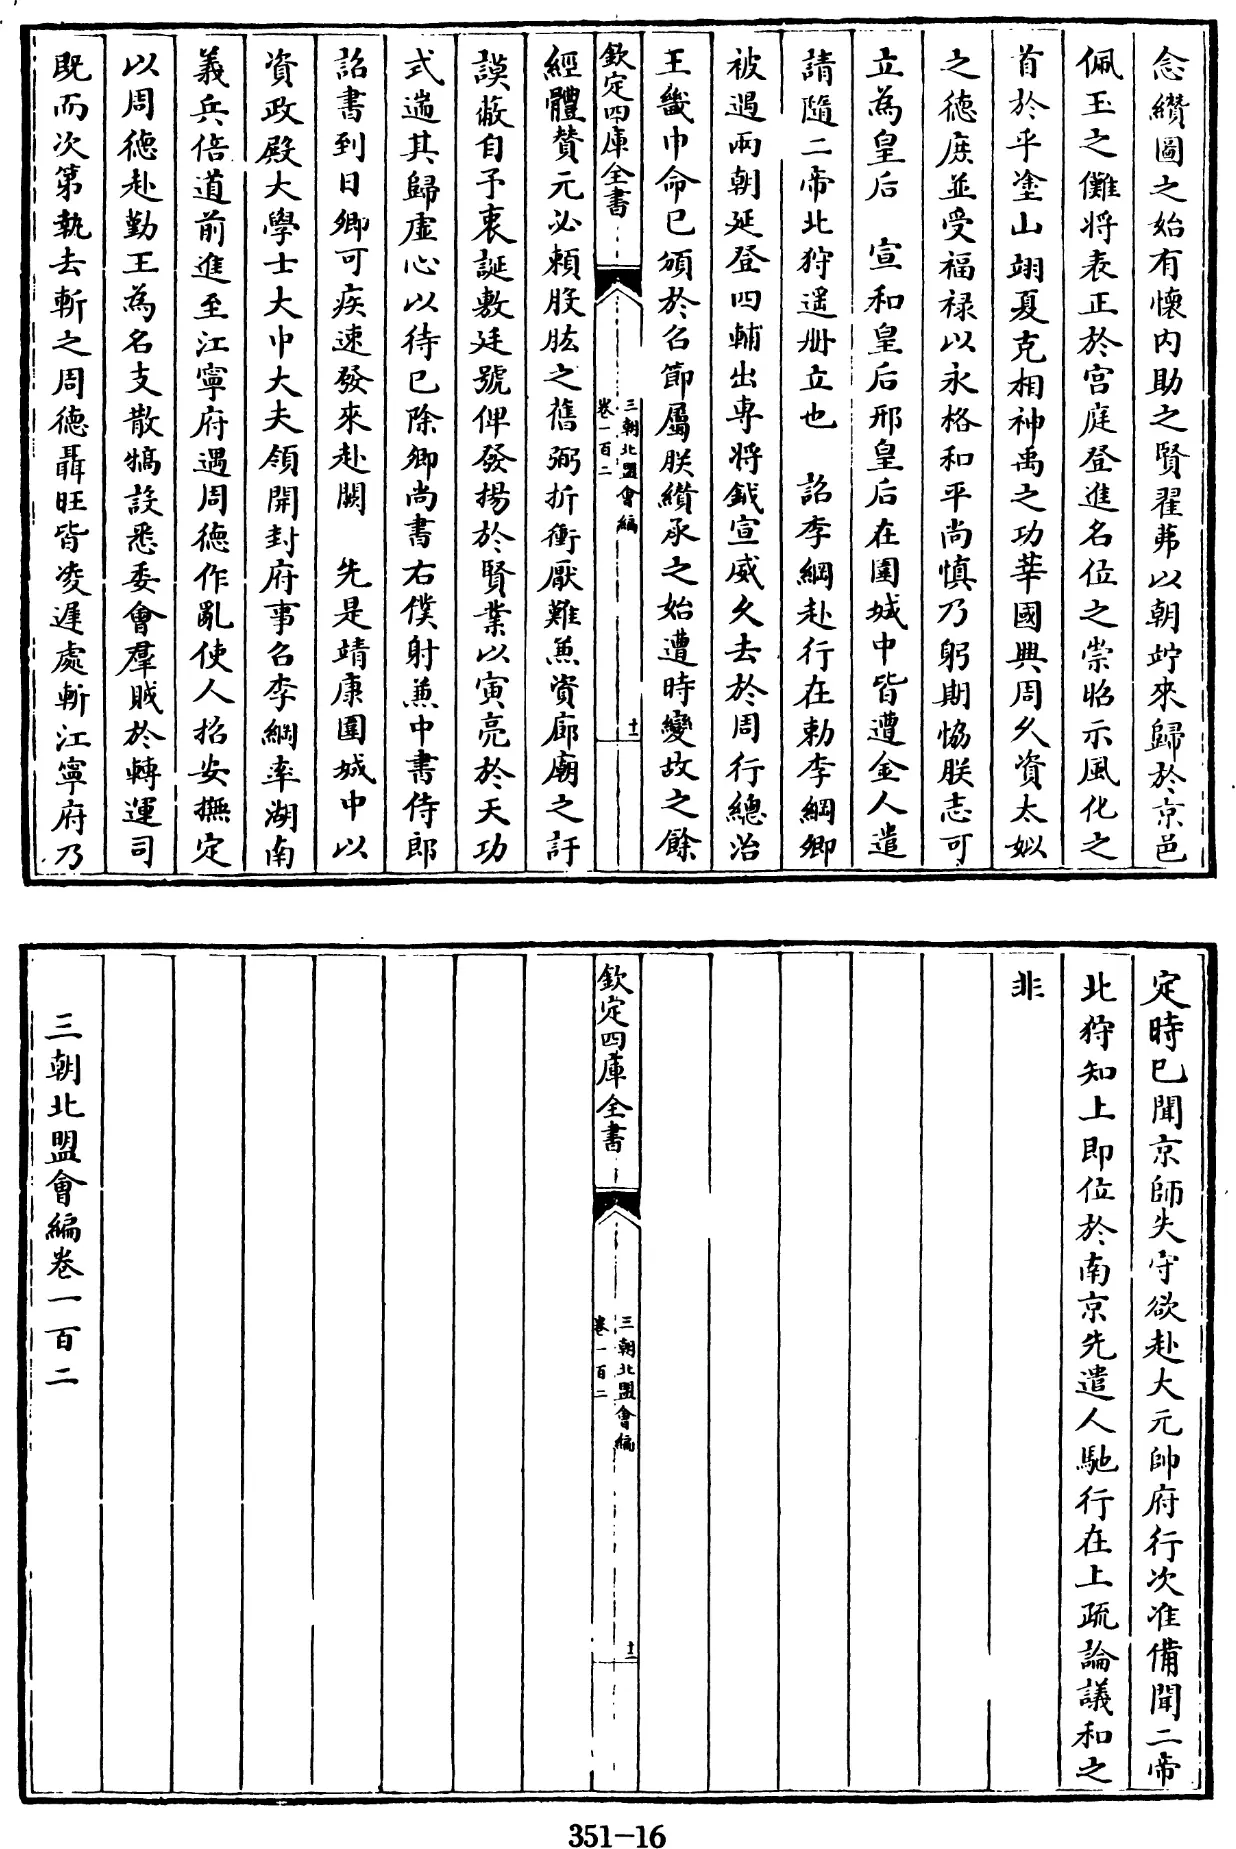 念纘圖之始有懐内助之賢翟茀以朝竚來歸於京邑
佩玉之儺將表正於宫庭登進名位之崇昭示風化之
首於乎塗山翊夏克相神禹之功莘國興周乆資太姒
之德庶並受福禄以永格和平尚慎乃躬期恊朕志可
立為皇后　宣和皇后邢皇后在圍城中皆遭金人遣
請隨二帝北狩遥册立也　詔李綱赴行在勅李綱卿
被遇兩朝延登四輔出専將鉞宣威久去於周行總治
王畿巾命已頒於召節屬朕纘承之始遭時變故之餘
欽定四庫全書
三朝北盟會編
卷一百二
十一
經體賛元必頼股肱之舊弼折衝厭難兼資廊廟之訏
謨蔽自予衷誕敷廷號俾發揚於賢業以寅亮於天功
式遄其歸虛心以待已除卿尚書右僕射兼中書侍郎
詔書到日卿可疾速發來赴闕　先是靖康圍城中以
資政殿大學士大中大夫領開封府事召李綱率湖南
義兵倍道前進至江寧府遇周德作亂使人招安撫定
以周德赴勤王為名支散犒設悉委會羣賊於轉運司
既而次第執去斬之周德聶旺皆凌遲處斬江寧府乃
定時已聞京師失守欲赴大元帥府行次准備聞二帝
北狩知上即位於南京先遣人馳行在上疏論議和之
非
欽定四庫全書
三朝北盟會編
卷一百二
十二
三朝北盟會編卷一百二
351-16